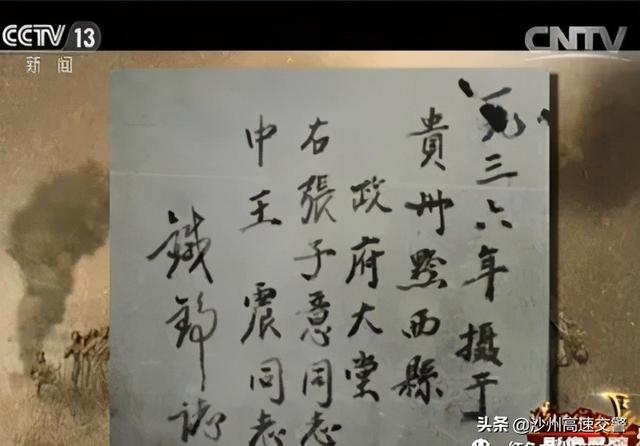 CCTV 13
新闻
CNTV
三六年攝于
貴州黔西縣
政府大堂
右張子意同志
中王震同志
鐵錚誌
头条 @沙州高速交警